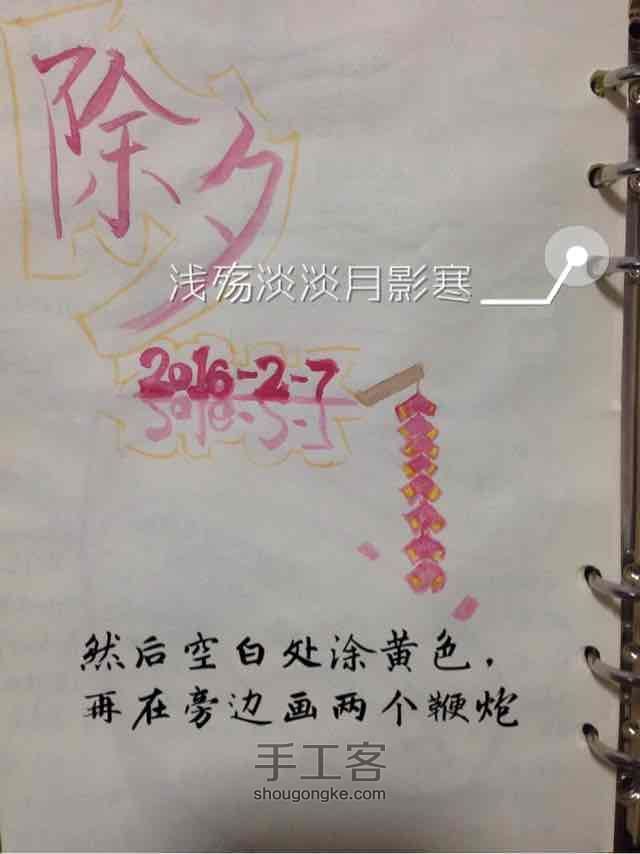 除夕
浅殇淡淡月影寒
2016-2-7
然后空白处涂黄色，
再在旁边画两个鞭炮
手工客
shougongke.com